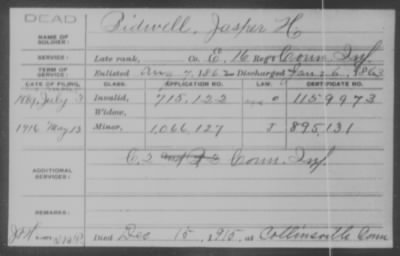 DEAD
NAME OF SOLDIER: Bidwell, Jasper H
SERVICE: Late rank, Co. E, 16 Reg't Conn Inf.
TERM OF SERVICE: Enlisted Aug 7, 1862 Discharged Jan 26, 1863
DATE OF FILING. CLASS. APPLICATION NO. LAW. CERTIFICATE NO.
July 3 Invalid, 715,122 1159973
Widow,
1916 May 13 Minor, 1,066,127 J 895,131
ADDITIONAL SERVICES: C, 2 Conn. Inf.
REMARKS:
Died Dec 15, 1915, at Collinsville Conn